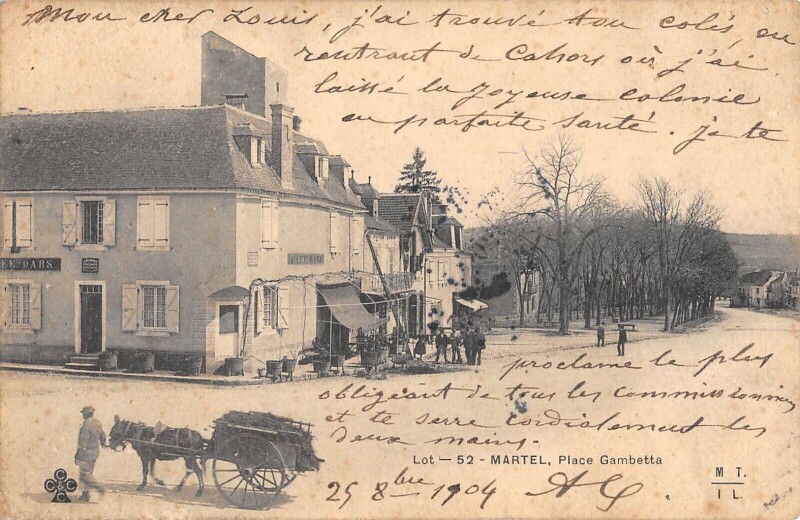 Mon cher Louis, j'ai trouvé ton colis, en
rentrant de Cahors où j'ai
laissé la joyeuse colonie
en parfaite santé. Je te
proclame le plus
obligeant de tous les commissionnaires
et te serre cordialement les
deux mains.
CAFÉ DARS
EE DARS
Lot — 52 - MARTEL, Place Gambetta
25 8bre 1904
C C C C
M T.
I L